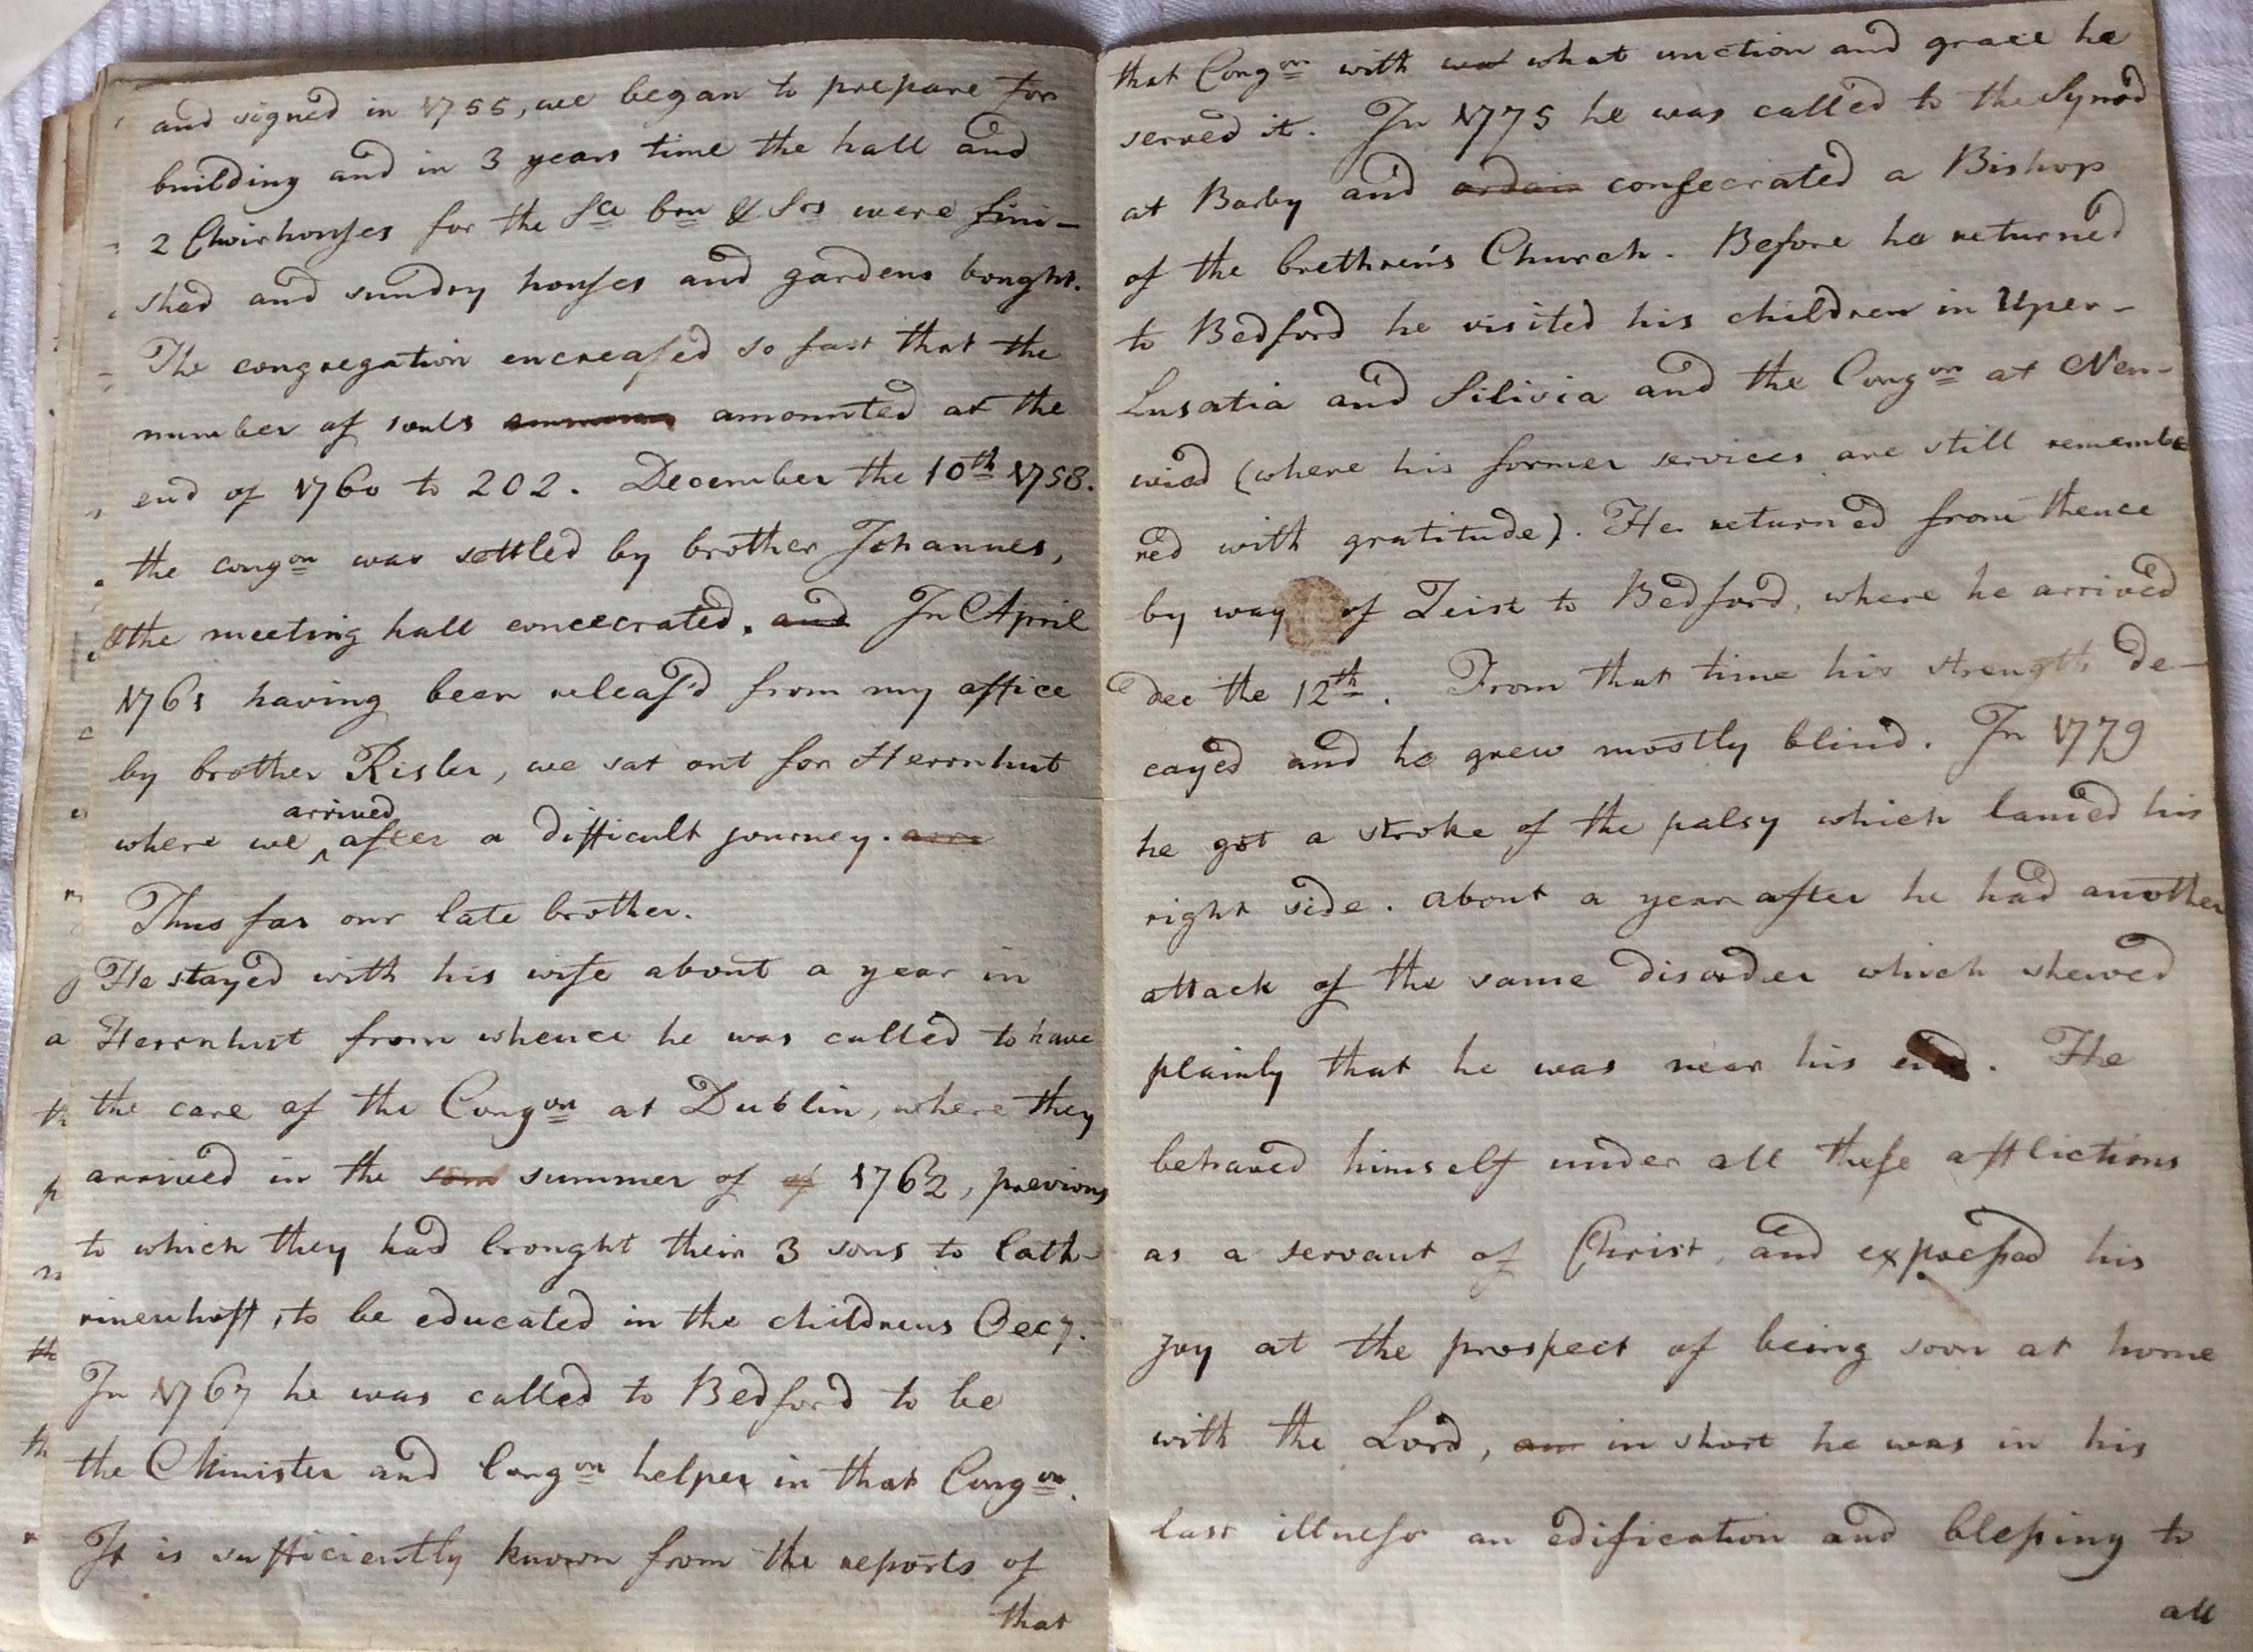 and signed in 1755, we began to prepare for
building and in 3 years time the hall and
2 Choirhouses for the Sce brn & Srs were fini-
shed and sundry houses and gardens bought.
The congregation encreased so fast that the
number of souls amounted at the
end of 1760 to 202. December the 10th 1758.
the congon was settled by brother Johannes,
& the meeting hall concecrated. and In April
1761 having been releas'd from my office
by brother Risler, we sat out for Herrnhut
where we arrived after a difficult journey. arri
Thus far our late brother.
He stayed with his wife about a year in
Herrnhut from whence he was called to have
the care of the Congon at Dublin, where they
arrived in the som summer of of 1762, previous
to which they had brought their 3 sons to Cath-
rinenhoff, to be educated in the childrens Oecy.
In 1767 he was called to Bedford to be
the Minister and Congon helper in that Congon.
It is sufficiently known from the reports of
that
that Congon with wa what unction and grace he
served it. In 1775 he was called to the Synod
at Barby and ordain consecrated a Bishop
of the brethren's Church. Before he returned
to Bedford he visited his children in Uper-
Lusatia and Silisia and the Congon at Neu-
wied (where his former services are still remembe
red with gratitude). He returned from thence
by way of Zeist to Bedford, where he arrived
dec the 12th. From that time his strength de-
cayed and he grew mostly blind. In 1779
he got a stroke of the palsy which lamed his
right side. about a year after he had another
attack of the same disorder which shewed
plainly that he was near his end. He
behaved himself under all these afflictions
as a servant of Christ, and expressed his
joy at the prospect of being soon at home
with the Lord, an in short he was in his
last illness an edification and blessing to
all